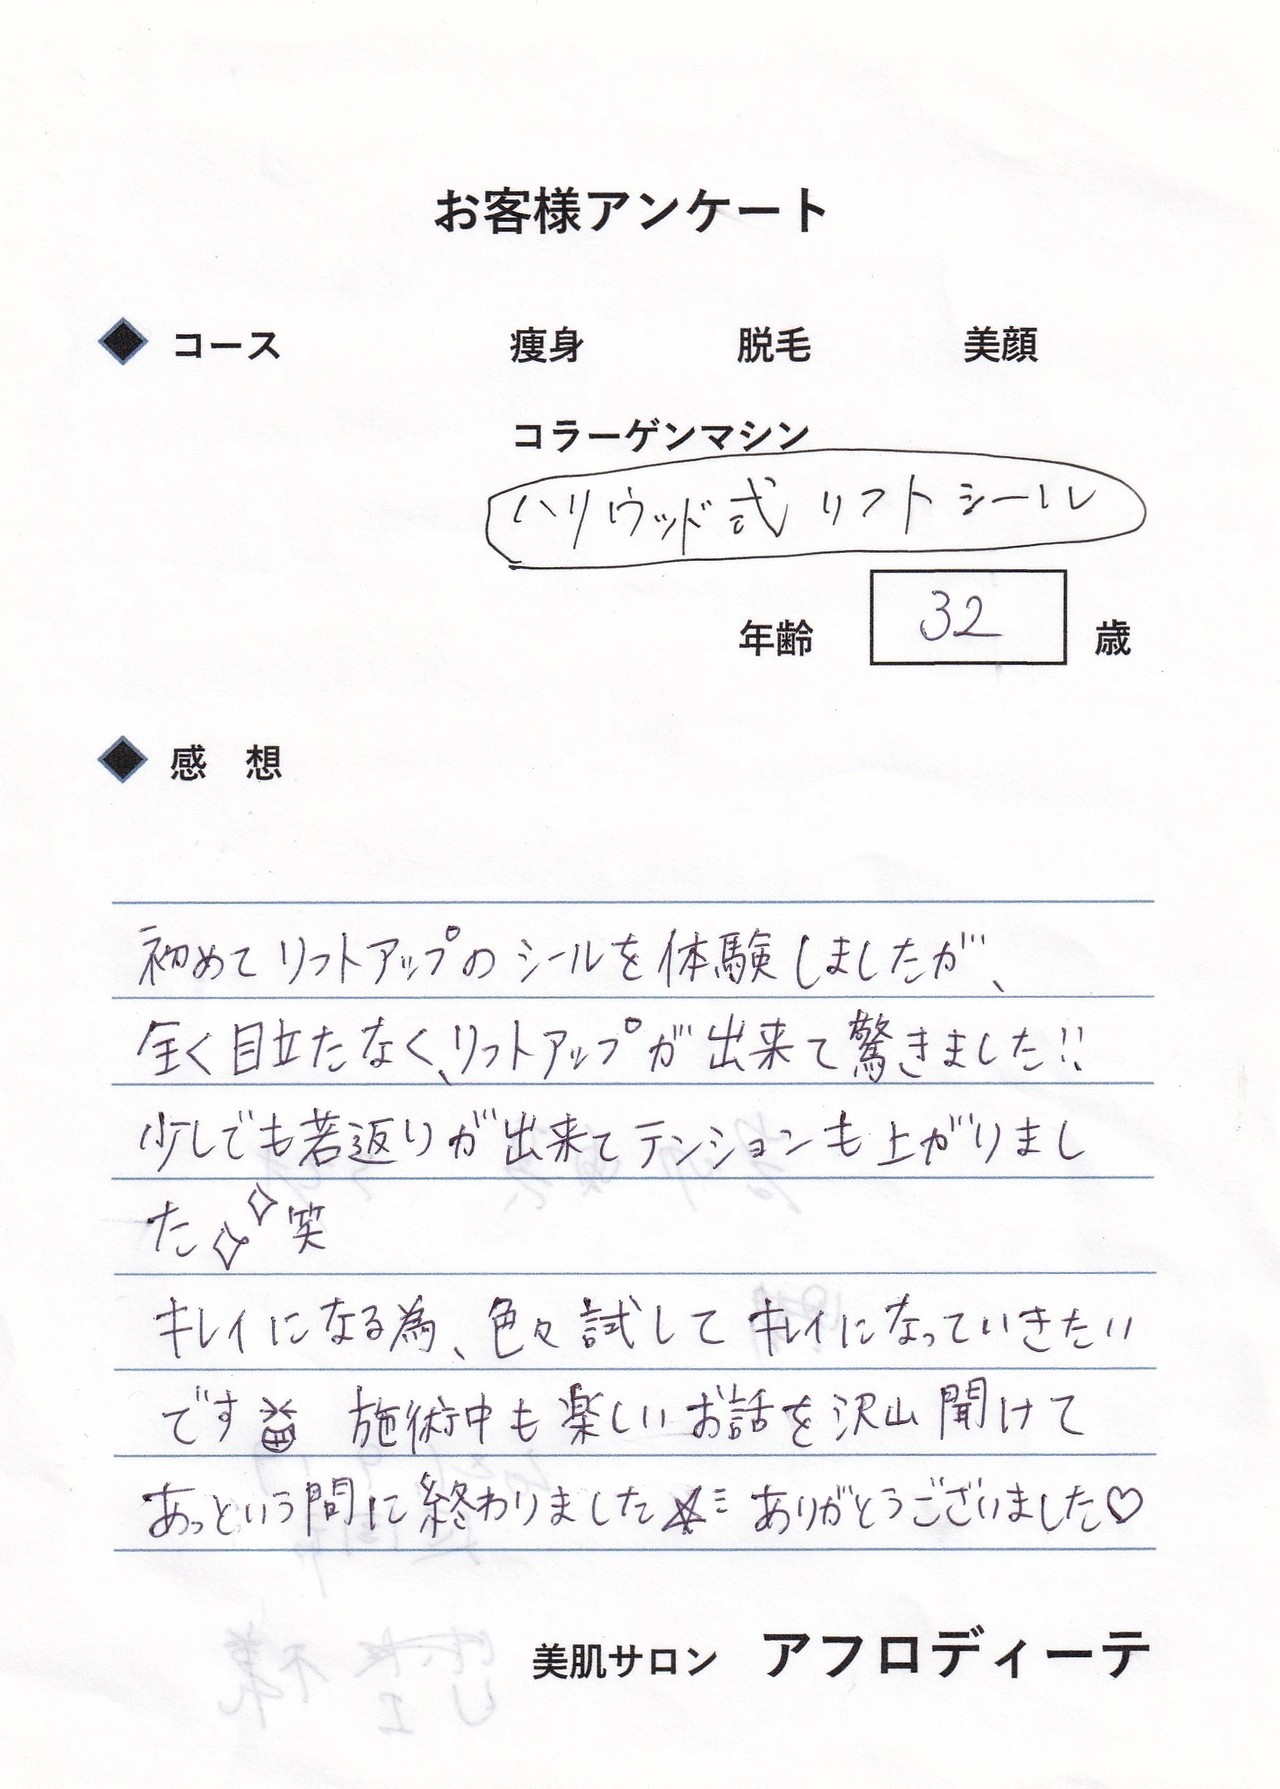 お客様アンケート
◆ コース 痩身 脱毛 美顔
コラーゲンマシン
ハリウッド式 リフトシール
年齢 32 歳
◆ 感 想
初めてリフトアップのシールを体験しましたが、
全く目立たなく、リフトアップが出来て驚きました!!
少しでも若返りが出来てテンションも上がりまし
た 笑
キレイになる為、色々試してキレイになっていきたい
です 施術中も楽しいお話を沢山聞けて
あっという間に終わりました☆ ありがとうございました♡
美肌サロン アフロディーテ